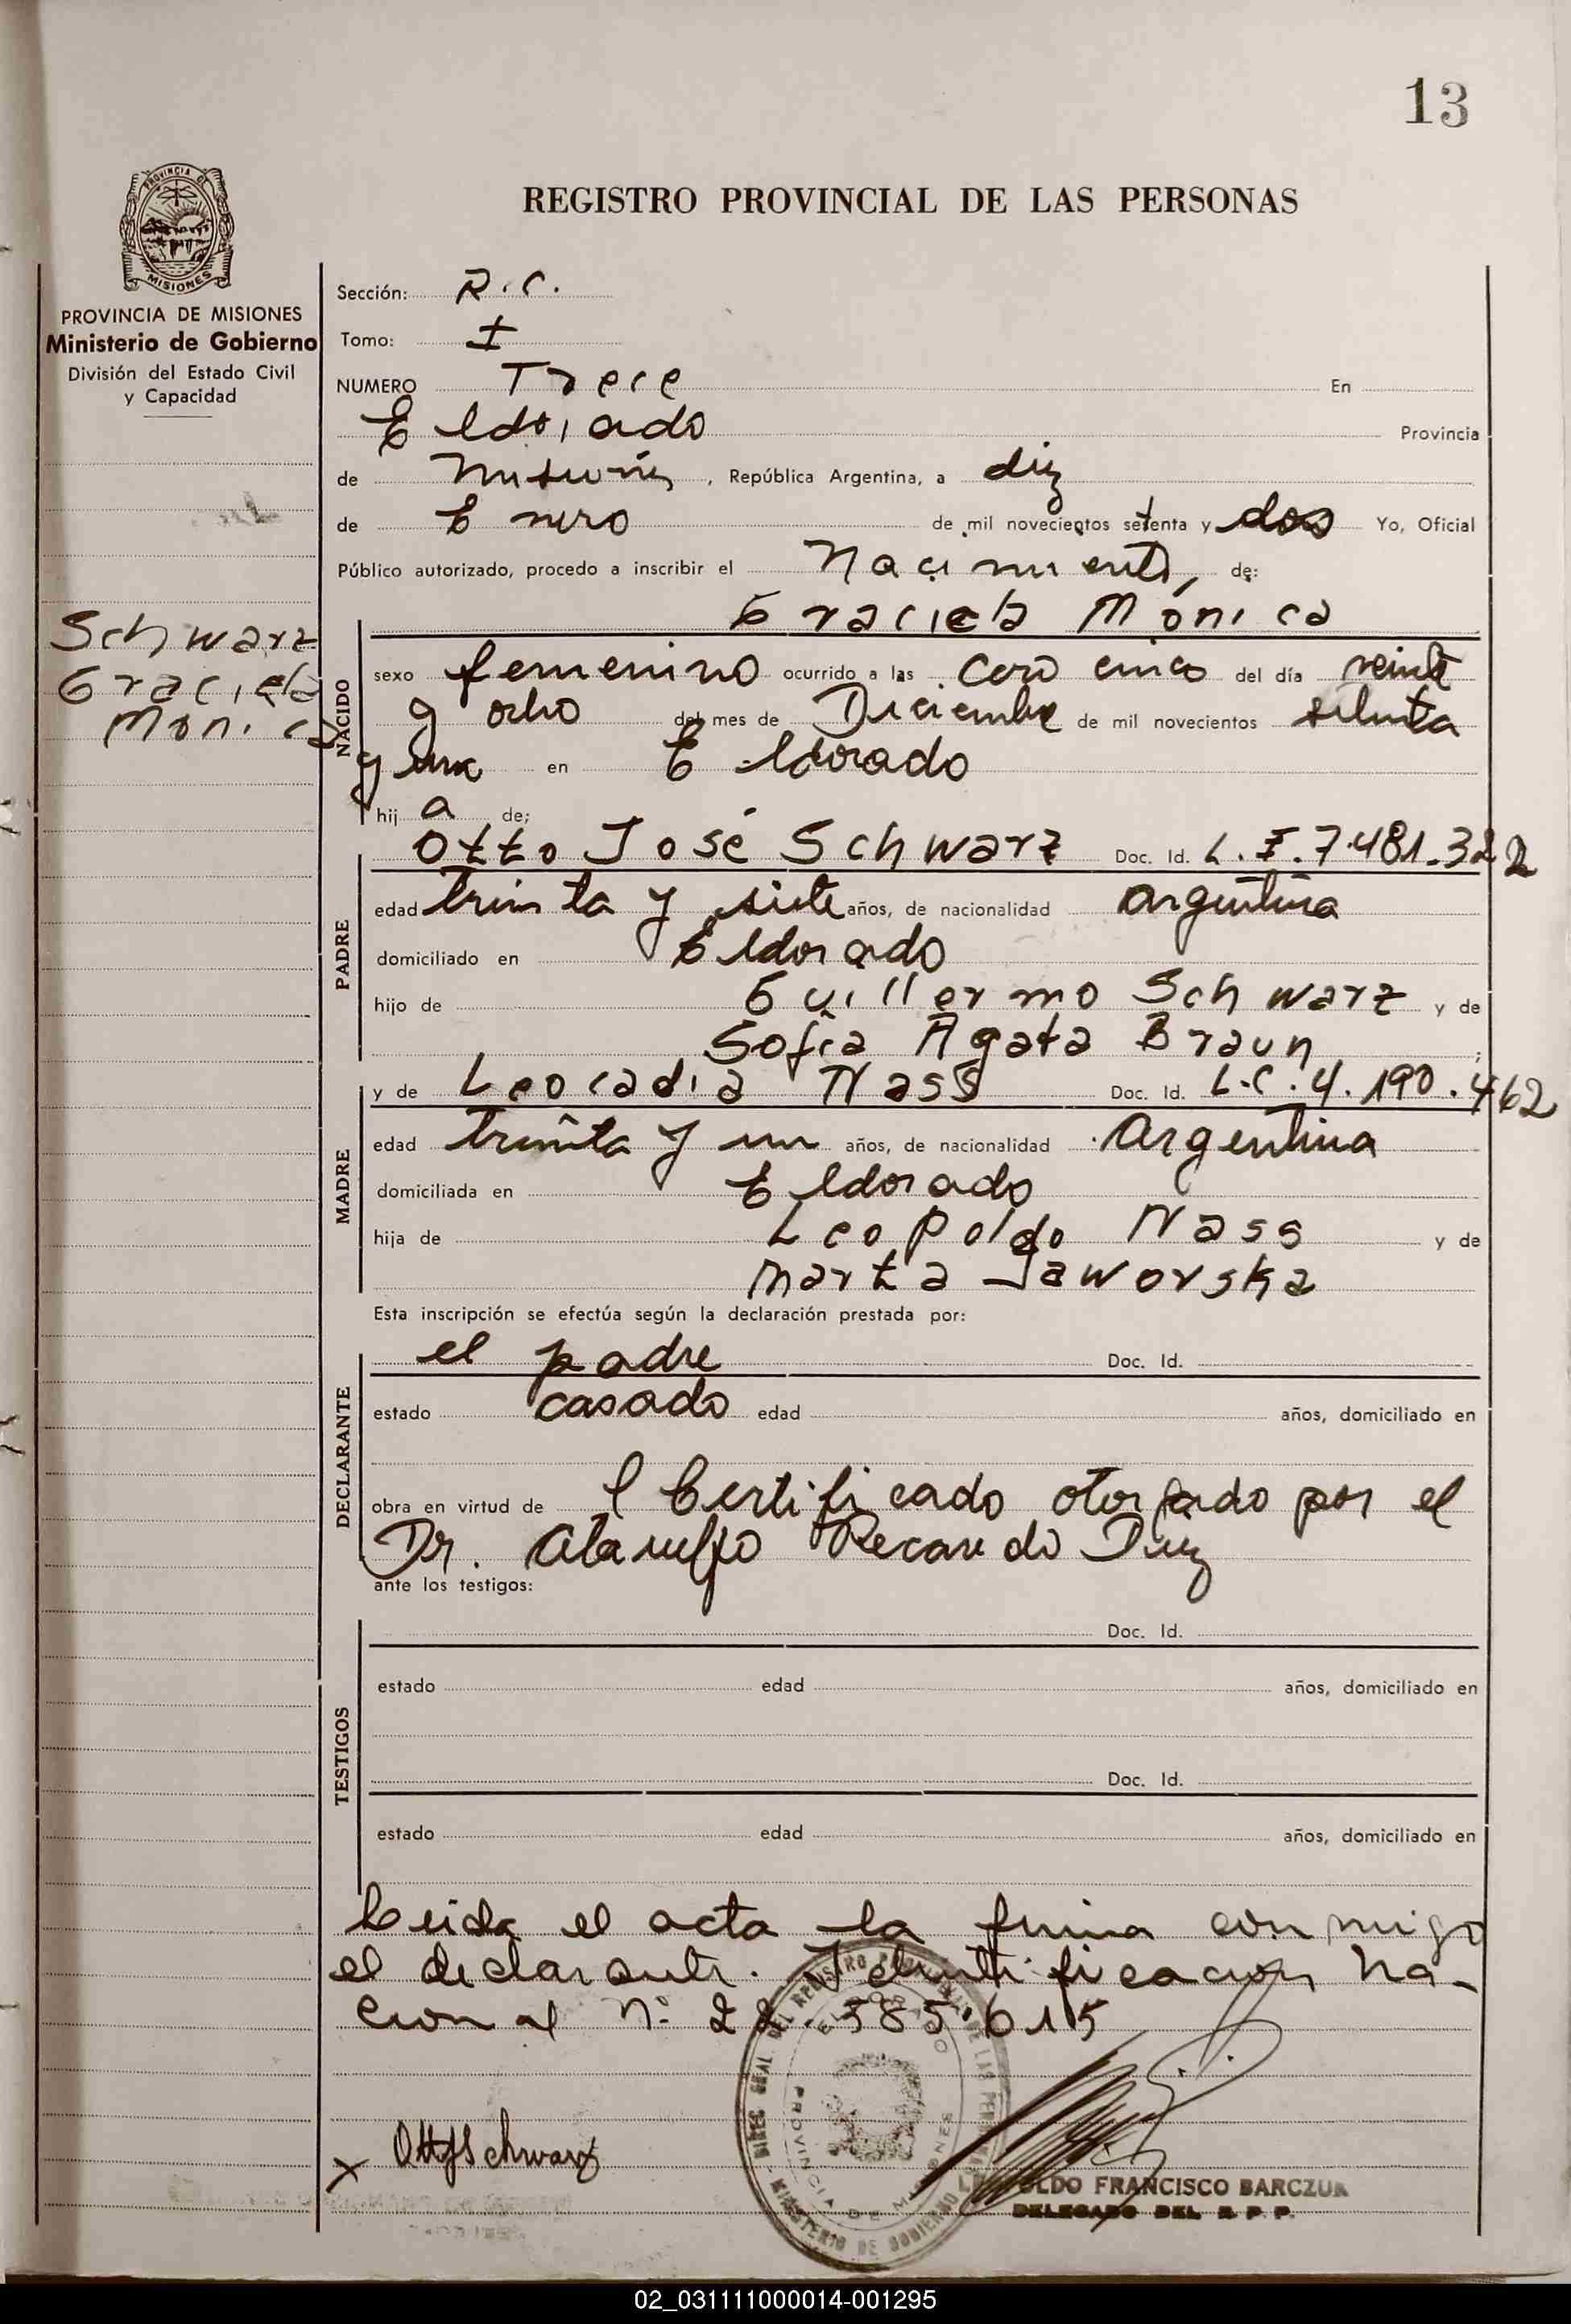 13
REGISTRO PROVINCIAL DE LAS PERSONAS
PROVINCIA DE
MISIONES
PROVINCIA DE MISIONES
Ministerio de Gobierno
División del Estado Civil
y Capacidad
Schwarz
Graciela
Mónica
Sección: R.C.
Tomo: I
NUMERO Trece En
Eldorado Provincia
de Misiones, República Argentina, a diez
de Enero de mil novecientos setenta y dos Yo, Oficial
Público autorizado, procedo a inscribir el Nacimiento, de:
Graciela Mónica
NACIDO
sexo femenino ocurrido a las cero cinco del día veinte
y ocho del mes de Diciembre de mil novecientos setenta
y uno en Eldorado
hij a de;
PADRE
Otto José Schwarz Doc. Id. L.E.7.481.322
edad treinta y siete años, de nacionalidad argentina
domiciliado en Eldorado
hijo de Guillermo Schwarz y de
Sofía Agata Braun;
MADRE
y de Leocadia Nass Doc. Id. L.C.4.190.462
edad treinta y un años, de nacionalidad Argentina
domiciliada en Eldorado
hija de Leopoldo Nass y de
Marta Jaworska
Esta inscripción se efectúa según la declaración prestada por:
DECLARANTE
el padre Doc. Id.
estado casado edad años, domiciliado en
obra en virtud de l Certificado otorgado por el
Dr. Ataulfo Recaredo Diez
ante los testigos:
TESTIGOS
Doc. Id.
estado edad años, domiciliado en
Doc. Id.
estado edad años, domiciliado en
Leida el acta la firma conmigo
el declarante. Identificación Na-
cional Nº 22.585.615
x OttoJSchwarz
DIREC. GRAL. DEL REGISTRO PROVINCIAL DE LAS PERSONAS
MINISTERIO DE GOBIERNO
ELDORADO
PROVINCIA DE MISIONES
FRANCISCO BARCZUK
DELEGADO DEL R. P. P.
02_031111000014-001295